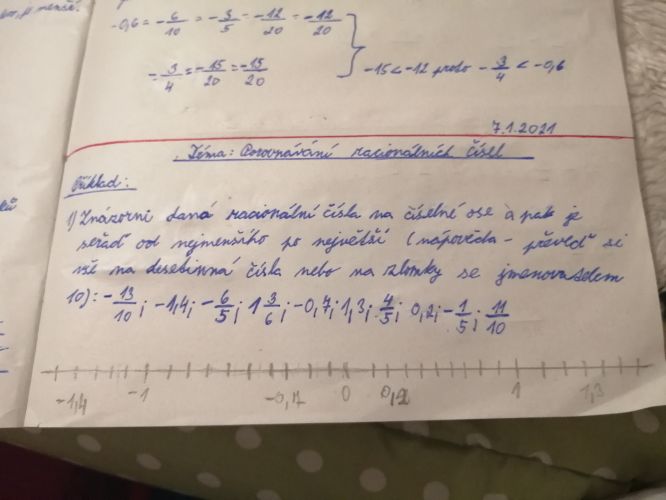 -0,6 = -6/10 = -3/5 = -12/20 = -12/20
= 3/4 = -15/20 = -15/20
-15 < -12 proto -3/4 < -0,6
7.1.2021
Téma: Porovnávání racionálních čísel
Příklad:
1) Znázorni daná racionální čísla na číselné ose a pak je
seřaď od nejmenšího po největší (nápověda - převeď si
vše na desetinná čísla nebo na zlomky se jmenovatelem
10): -13/10; -1,4; -6/5; 1 3/6; -0,7; 1,3; 4/5; 0,2; -1/5; 11/10
-1,4 -1 -0,7 0 0,2 1 1,3